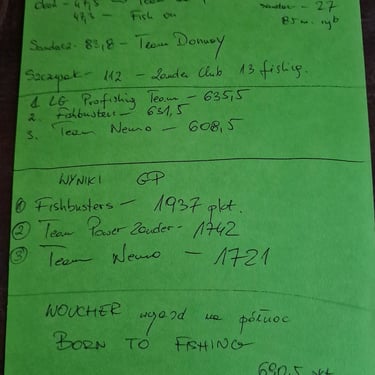 47,5 - Team
47,3 - Fish on
Sandacz - 27
85 m. ryb
Sandacz - 83,8 - Team Dunvoy
Szczupak - 112 - Zander Club 13 fishing.
1 LG Profishing Team - 635,5
2. Fishbusters - 631,5
3. Team Nemo - 608,5
WYNIKI GP
① Fishbusters - 1937 pkt.
② Team Power Zander - 1742
③ Team Nemo - 1721
VOUCHER wyjazd na północ
BORN TO FISHING
690,5 pkt